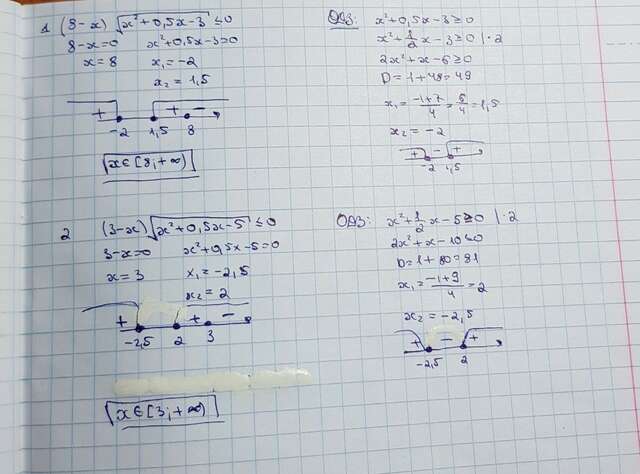 1 (8-x) √x²+0,5x-3 ≤0
8-x=0 x²+0,5x-3=0
x=8 x₁=-2
x₂=1,5
+ + -
-2 1,5 8
x∈[8;+∞)
ОДЗ: x²+0,5x-3≥0
x²+1/2x-3≥0 |·2
2x²+x-6≥0
D=1+48=49
x₁=-1+7/4=6/4=1,5
x₂=-2
+ - +
-2 1,5
2 (3-x)√x²+0,5x-5 ≤0
3-x=0 x²+0,5x-5=0
x=3 x₁=-2,5
x₂=2
+ + -
-2,5 2 3
x∈[3;+∞)
ОДЗ: x²+1/2x-5≥0 |·2
2x²+x-10≥0
D=1+80=81
x₁=-1+9/4=2
x₂=-2,5
+ - +
-2,5 2